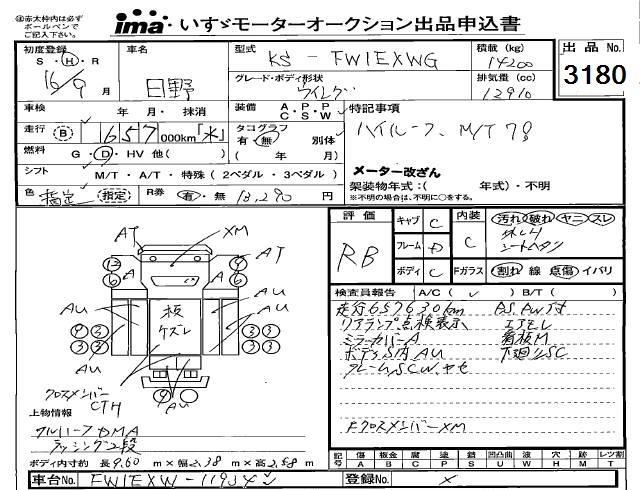 ㊟赤太枠内は必ずボールペンでご記入下さい。
ima・いすゞモーターオークション出品申込書
初度登録 S・H・R 16/9月
車名 日野
型式 KS-FW1EXWG
積載(kg) 14200
出品No. 3180
グレード・ボディ形状 ウイング
排気量(cc) 12910
車検 年・月・抹消
装備 A・P・P C・S・W
特記事項
走行 (B) 657 000km「米」
タコグラフ 有・無 別体 (年 月)
ハイルーフ、M/T 7
燃料 G・D・HV 他( )
メーター改ざん
シフト M/T・A/T・特殊(2ペダル・3ペダル)
架装物年式:( 年式)・不明
※不明の場合は、不明に○をする。
色 指定(指定)
R券 有・無 18,290円
評価 RB
キャブ C
内装 C
汚れ・破れ・ヤニ・スレ
フレーム D
シートヘタリ
ボディ C
Fガラス 割れ 線 点傷・イバリ
検査員報告 A/C( ✓ ) B/T( )
走行657630km
リアランプ点検表示 エアモレ
ミラーカバーA 看板M
ボデーS内AU 下廻りSC
フレームSCW.ヤセ
FクロスメンバーXM
AT XM AT
A A
AU AU AU
板ケズレ
AU AU AU
クロスメンバー CTH
上物情報
ラッシング2段
ボディ内寸約 長9.60m×幅2.38m×高2.58m
記号 傷A 板金B 腐C 塗P 錆S 凹凸曲U 波W 穴H 跡M レツ割T
車台No. FW1EXW-11954
登録No. ×